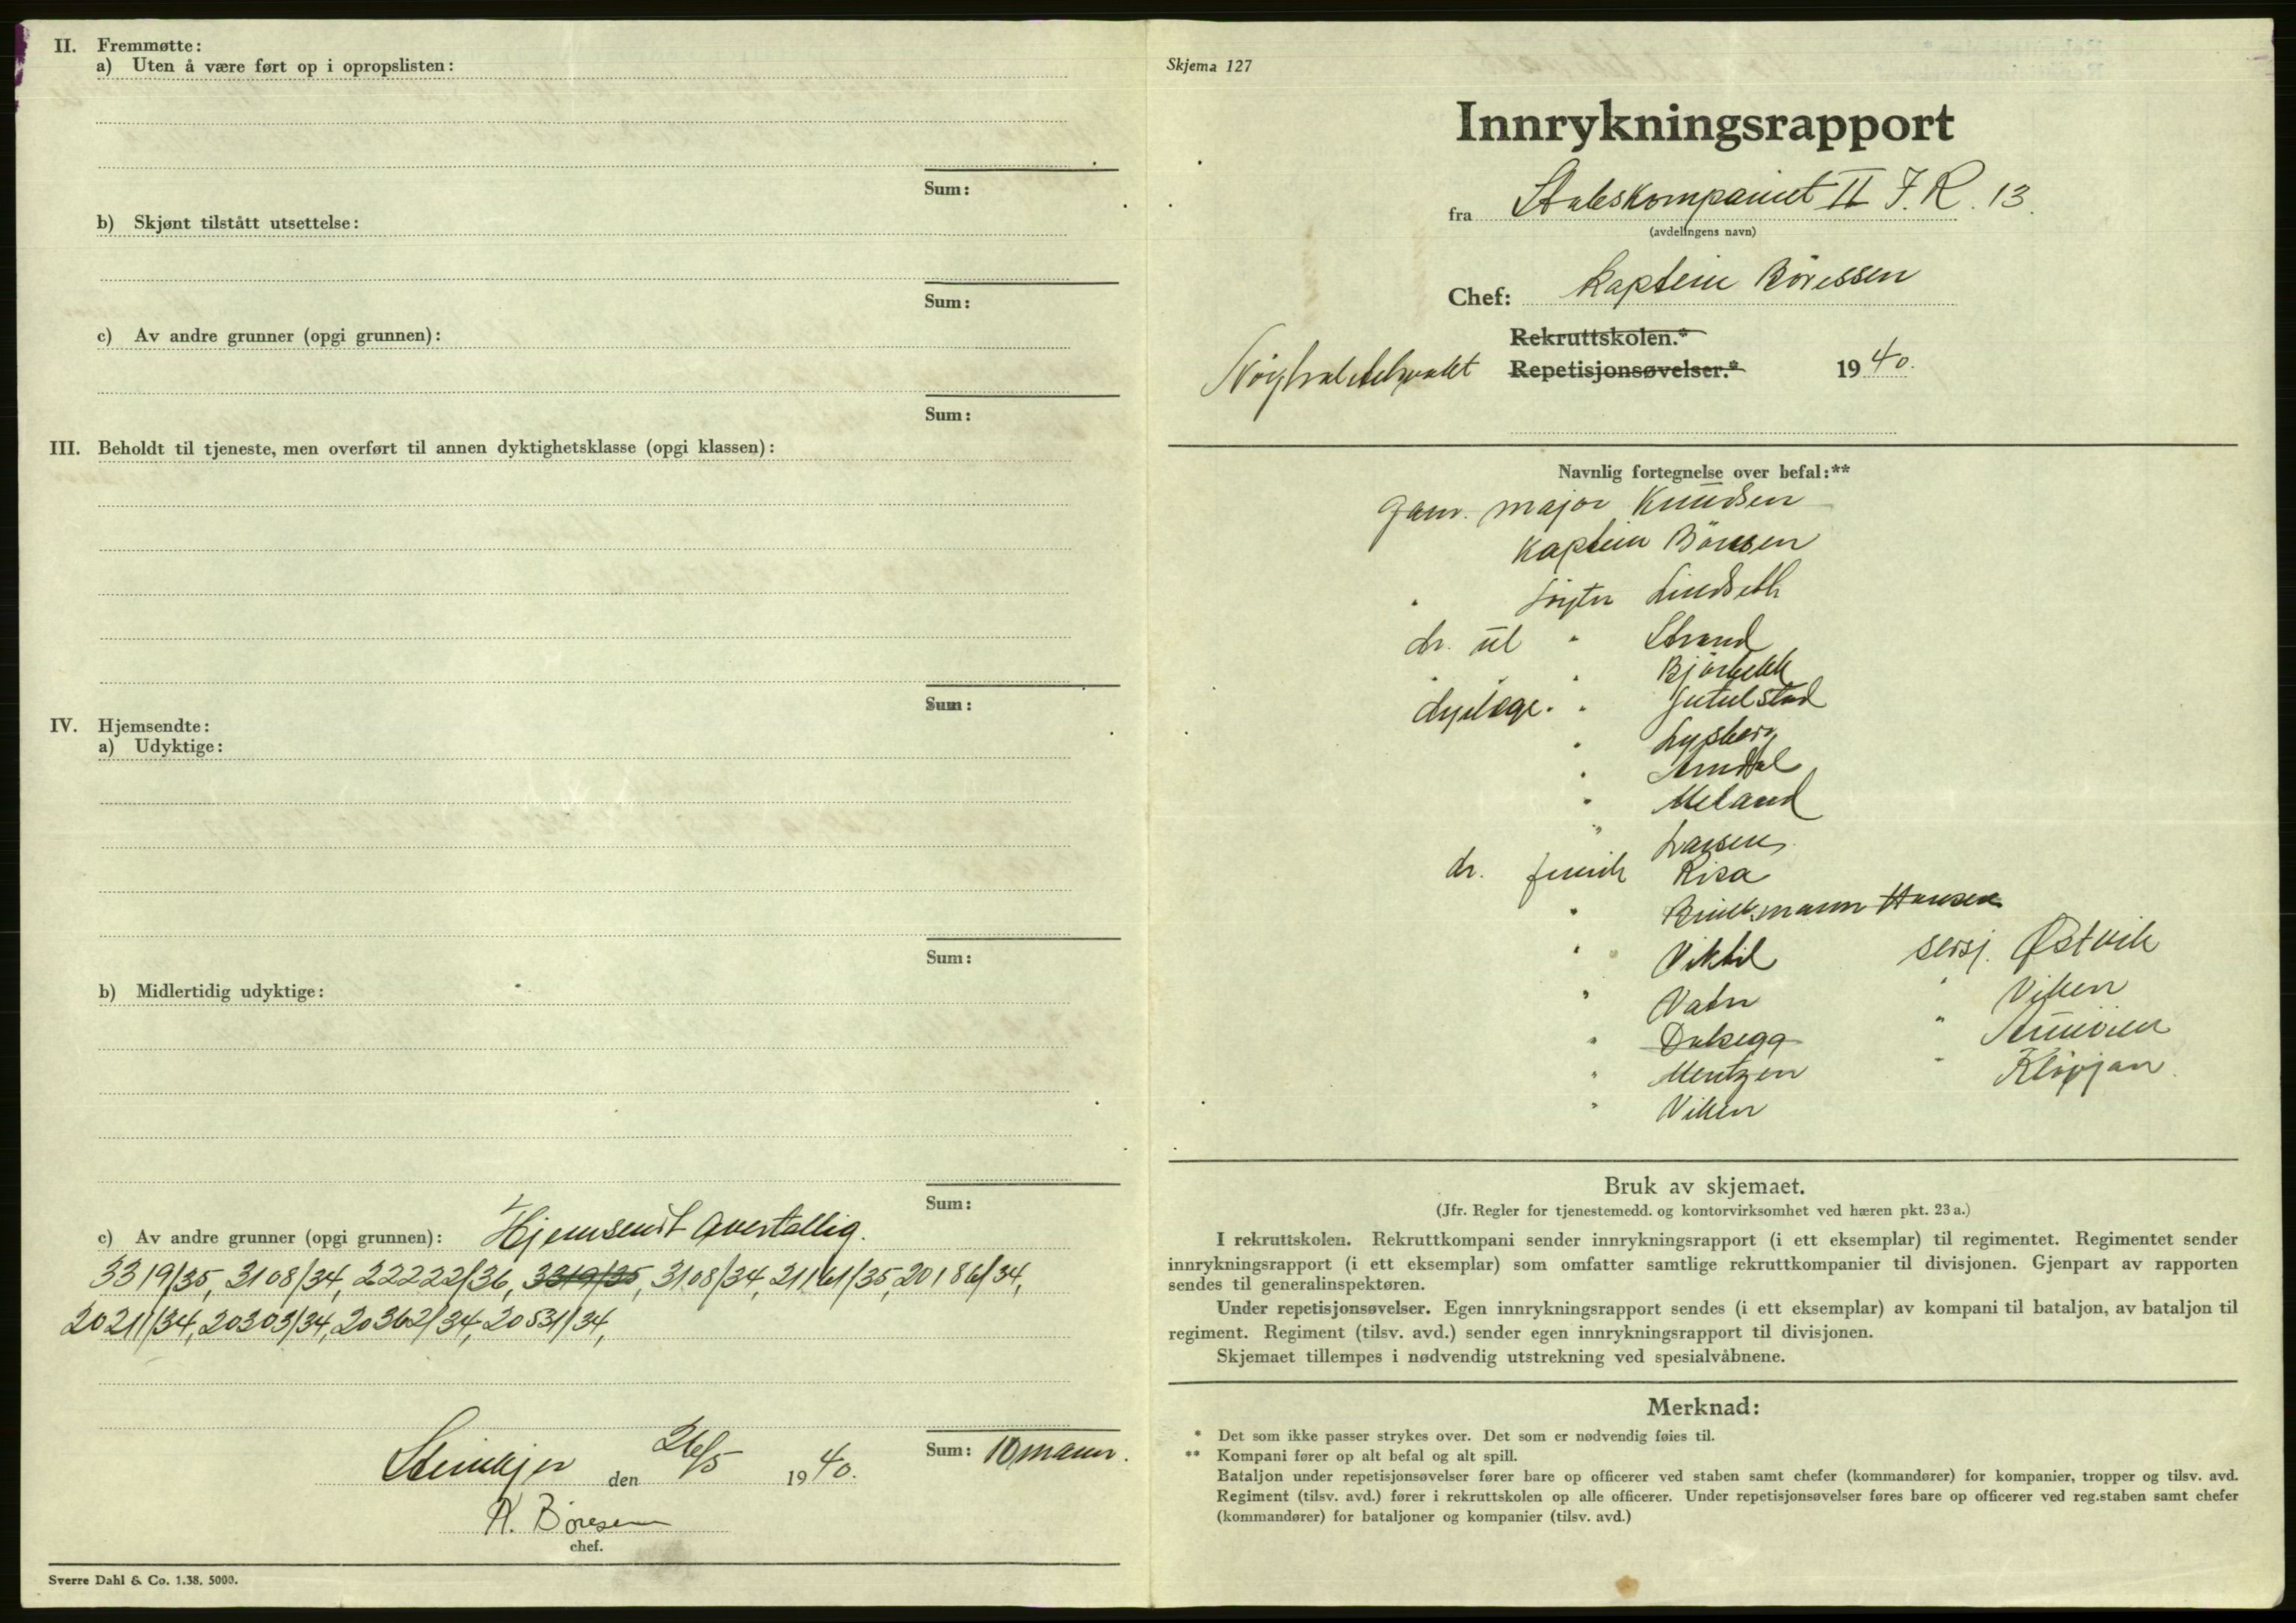 II. Fremmøtte:
a) Uten å være ført op i opropslisten:
Sum:
b) Skjønt tilstått utsettelse:
Sum:
c) Av andre grunner (opgi grunnen):
Sum:
III. Beholdt til tjeneste, men overført til annen dyktighetsklasse (opgi klassen):
Sum:
IV. Hjemsendte:
a) Udyktige:
Sum:
b) Midlertidig udyktige:
Sum:
c) Av andre grunner (opgi grunnen): Hjemsendt overtallig.
3319/35, 3108/34, 22222/36, 3319/35, 3108/34, 21161/35, 20186/34,
20211/34, 20303/34, 20362/34, 20531/34,
Sum: 10 mann.
Steinkjer den 26/5 1940.
R. Børesen
chef.
Sverre Dahl & Co. 1.38. 5000.
Skjema 127
Innrykningsrapport
fra Stabskompaniet II I.R. 13.
(avdelingens navn)
Chef: Kaptein Böressen
Rekruttskolen.*
Nöytralitetsvakt Repetisjonsøvelser.* 1940.
Navnlig fortegnelse over befal:**
major Knudsen
Kaptein Börresen
Löytn Lindseth
Strand
Björkekk
Jutulstad
Lysberg
Meland
Larsen
dr. fenrik Risa
Brinckmann Hansen
Viktil sersj. Østvik
Vatn " Viken
" Dalsegg "
" Mentzen " Klipjan
" Viken
Bruk av skjemaet.
(Jfr. Regler for tjenestemedd. og kontorvirksomhet ved hæren pkt. 23 a.)
I rekruttskolen. Rekruttkompani sender innrykningsrapport (i ett eksemplar) til regimentet. Regimentet sender
innrykningsrapport (i ett eksemplar) som omfatter samtlige rekruttkompanier til divisjonen. Gjenpart av rapporten
sendes til generalinspektøren.
Under repetisjonsøvelser. Egen innrykningsrapport sendes (i ett eksemplar) av kompani til bataljon, av bataljon til
regiment. Regiment (tilsv. avd.) sender egen innrykningsrapport til divisjonen.
Skjemaet tillempes i nødvendig utstrekning ved spesialvåbnene.
Merknad:
* Det som ikke passer strykes over. Det som er nødvendig føies til.
** Kompani fører op alt befal og alt spill.
Bataljon under repetisjonsøvelser fører bare op officerer ved staben samt chefer (kommandører) for kompanier, tropper og tilsv. avd.
Regiment (tilsv. avd.) fører i rekruttskolen op alle officerer. Under repetisjonsøvelser føres bare op officerer ved reg.staben samt chefer
(kommandører) for bataljoner og kompanier (tilsv. avd.)